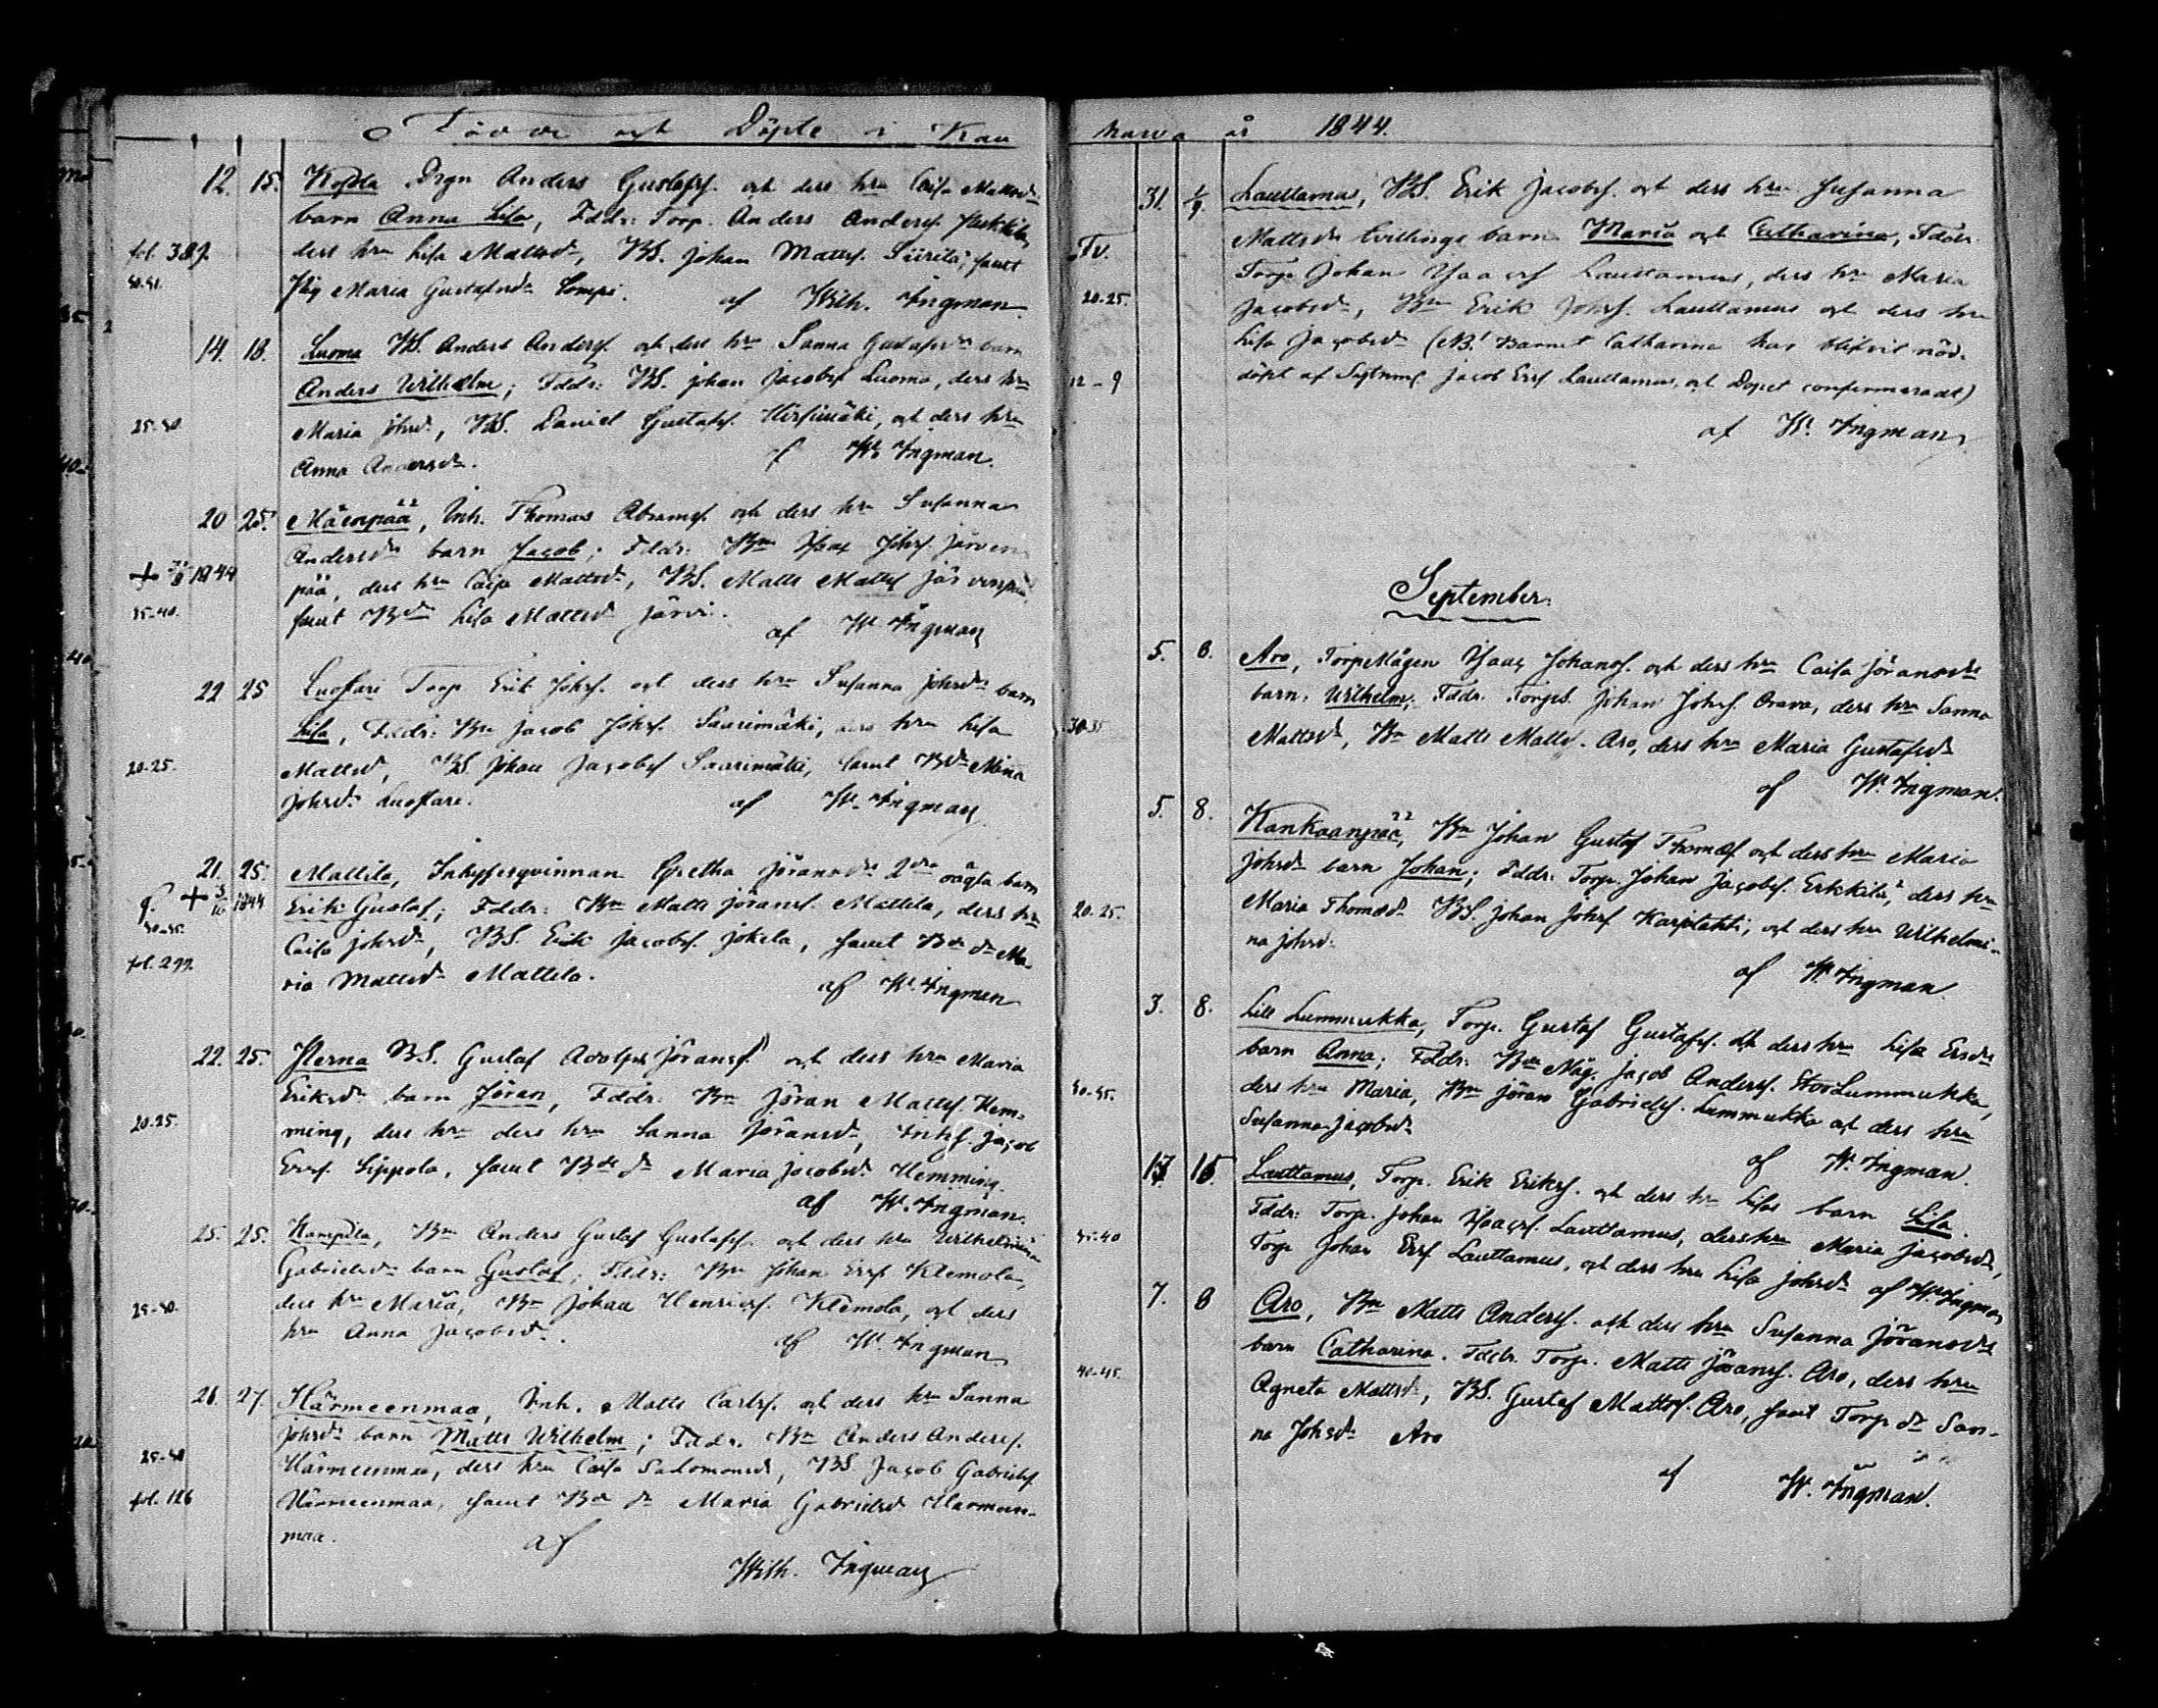 Födde och Döpte i Kau
12. 15. Koskela Drgn Anders Gustafsf. och ders hru Caisa Mattsdr
barn Anna Lisa, Fddr: Torp. Anders Andersf.
fol. 389. ders hru Lisa Mattsdr, BS. Johan Mattsf. Siirilä, samt
50-51. Pig Maria Gustafsdr Lompi. af Wilh. Ingman
14. 18. Luoma BS. Anders Andersf. och ders hru Sanna Gustafsdr barn
Anders Wilhelm; Fddr: BS. Johan Jacobsf Luoma, ders hru
25-30. Maria Johsdr, BS. Daniel Gustafsf. Hirsimäki, och ders hru
Anna Andersdr. af W. Ingman.
20 25. Mäenpää, Inh. Thomas Abramsf. och ders hru Susanna
Andersdr barn Jacob; Fddr: Bn Isaac Johsf. Järven
1844 pää, ders hru Caisa Mattsdr, BS. Matts Mattsf Järvenpää,
35-40. samt Bdr Lisa Mattsdr Järvi. af W. Ingman
22 25 Luostari Torp Erik Johsf. och ders hru Susanna Johsdr barn
Lisa, Fddr: Bn Jacob Johsf. Saarimäki, ders hru Lisa
20-25. Mattsd, BS. Johan Jacobsf Saarimäki, samt Bdr Mina
Johsdr Luostari. af W. Ingman
21. 25. Mattila, Inhysesqvinnan Gretha Jöransdr 2dra oägta barn
1844 Erik Gustaf; Fddr: Bn Matts Jöransf. Mattila, ders hru
Caisa Johsdr, BS. Erik Jacobsf. Jokela, samt Bde dr Ma-
fol. 299 ria Mattsdr Mattila. af W. Ingman
22. 25. Perna BS. Gustaf Adolph Jöransf. och ders hru Maria
Eriksdr barn Jöran, Fddr. Bn Jöran Mattsf. Hem-
20-25. ming, ders hru ders hru Sanna Jöransdr, Inhs. Jacob
Ersf. Sippola, samt Bde dr Maria Jacobsdr Hemming.
af W. Ingman.
25. 25. Kamppila, Bn Anders Gustaf Gustafsf. och ders hru Wilhelmina
Gabrielsdr barn Gustaf; Fddr: Bn Johan Ersf Klemola,
25-30. ders hru Maria, Bn Johan Henricsf. Klemola, och ders
hru Anna Jacobsdr. af W. Ingman
26. 27. Härmeenmaa, Inh. Matts Carlsf. och ders hru Sanna
Johsdr barn Matts Wilhelm; Fddr. Bn Anders Andersf.
25-30 Härmeenmaa, ders hru Caisa Salomonsd, BS. Jacob Gabrielsf
fol. 126 Härmeenmaa, samt Bde dr Maria Gabrielsd Härmeen-
maa. af
Wilh. Ingman
hawa år 1844.
31. 1/9. Lauttamus, BS. Erik Jacobsf. och ders hru Susanna
Tv. Mattsdr tvillinge barn Maria och Catharina, Fddr.
Torp Johan Isaacsf Lauttamus, ders hru Maria
20-25. Jacobsdr, Bn Erik Johsf. Lauttamus och ders hru
Lisa Jacobsdr (NB! Barnet Catharina har blifvit nöd-
12-9 döpt af Sytning Jacob Ersf Lauttamus, och Dopet confirmeradt)
af W. Ingman
September.
5. 8. Aro, TorpeMågen Isaac Johansf. och ders hru Caisa Jöransdr
barn: Wilhelm; Fddr. TorpeS. Johan Johsf. Orava, ders hru Sanna
30-35 Mattsdr, Bn Matts Mattsf. Aro, ders hru Maria Gustafsdr
af W. Ingman.
5. 8. Kankaanpää, Bn Johan Gustaf Thomasf och ders hru Maria
Johsdr barn Johan; Fddr. Torp. Johan Jacobsf. Erkkilä, ders hru
20-25. Maria Thomasdr BS. Johan Johsf Karpilahti, och ders hru Wilhelmi-
na Johsdr. af W. Ingman.
3. 8. Lill Lummukka, Torp. Gustaf Gustafsf. och ders hru Lisa Ersdr
barn Anna; Fddr: Bn Måg. Jacob Andersf. StorLummukka,
ders hru Maria, Bn Jöran Gabrielsf. Lummukka och ders hru
Susanna Jacobsdr af W. Ingman.
15. Lauttamus, Torp. Erik Eriksf. och ders hru Lisas barn Lisa.
35-40 Fddr: Torp. Johan Isaacsf. Lauttamus, ders hru Maria Jacobsdr,
Torp Johan Ersf Lauttamus, och ders hru Lisa Johsdr af W. Ingman
7. 8 Aro, Bn Matts Andersf. och ders hru Susanna Jöransdr
barn Catharina. Fddr. Torp. Matts Jöransf. Aro, ders hru
40-45. Agneta Mattsdr, BS. Gustaf Mattsf. Aro, samt Torp dr San-
na Johsdr Aro
af W. Ingman.